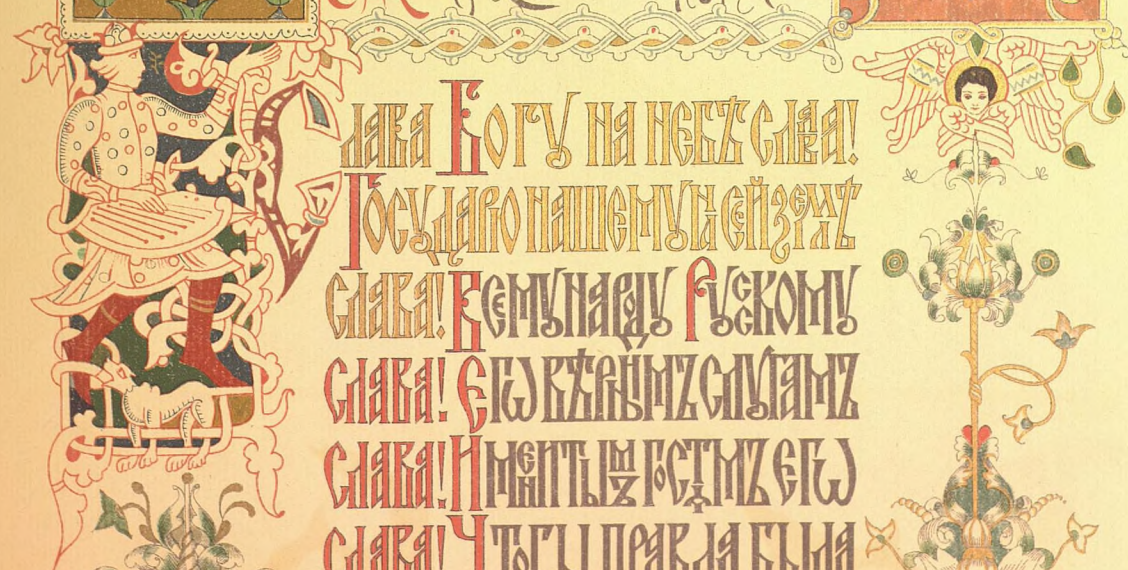 Слава Богу на небѣ слава!
Государю нашему на сей землѣ
слава! Всему народу Русскому
слава! Егѡ вѣрнымъ слугамъ
слава! Именитымъ гостѧмъ егѡ
слава! Чтобы правда была